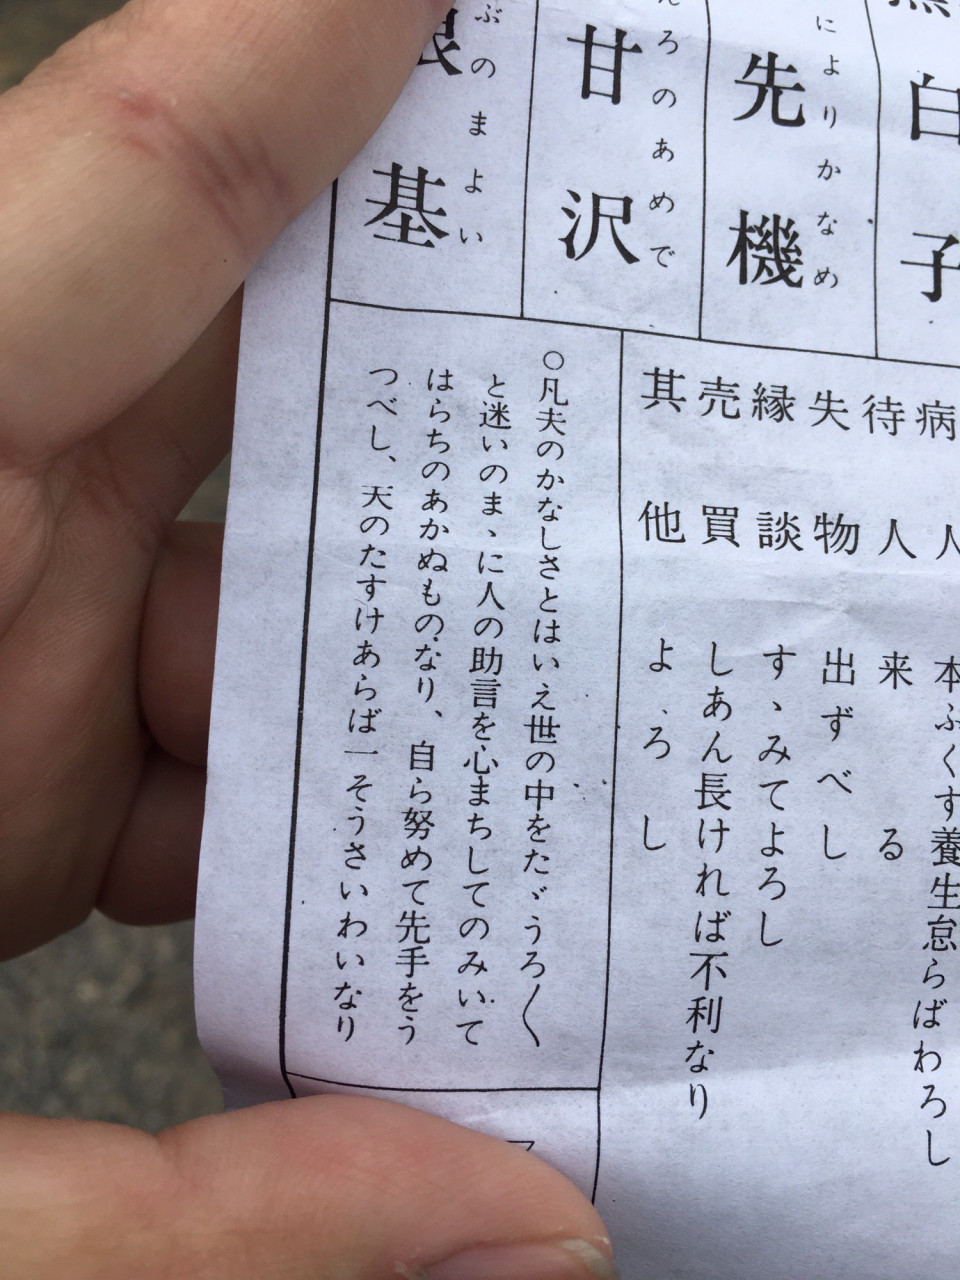 白子
によりかなめ
先機
ろのあめで
甘沢
ぶのまよい
基
病人 本ふくす養生怠らばわろし
待人 来る
失物 出ずべし
縁談 すゝみてよろし
売買 しあん長ければ不利なり
其他 よろし
○凡夫のかなしさとはいえ世の中をたゞうろ〱
と迷いのまゝに人の助言を心まちしてのみいて
はらちのあかぬものなり、自ら努めて先手をう
つべし、天のたすけあらば一そうさいわいなり